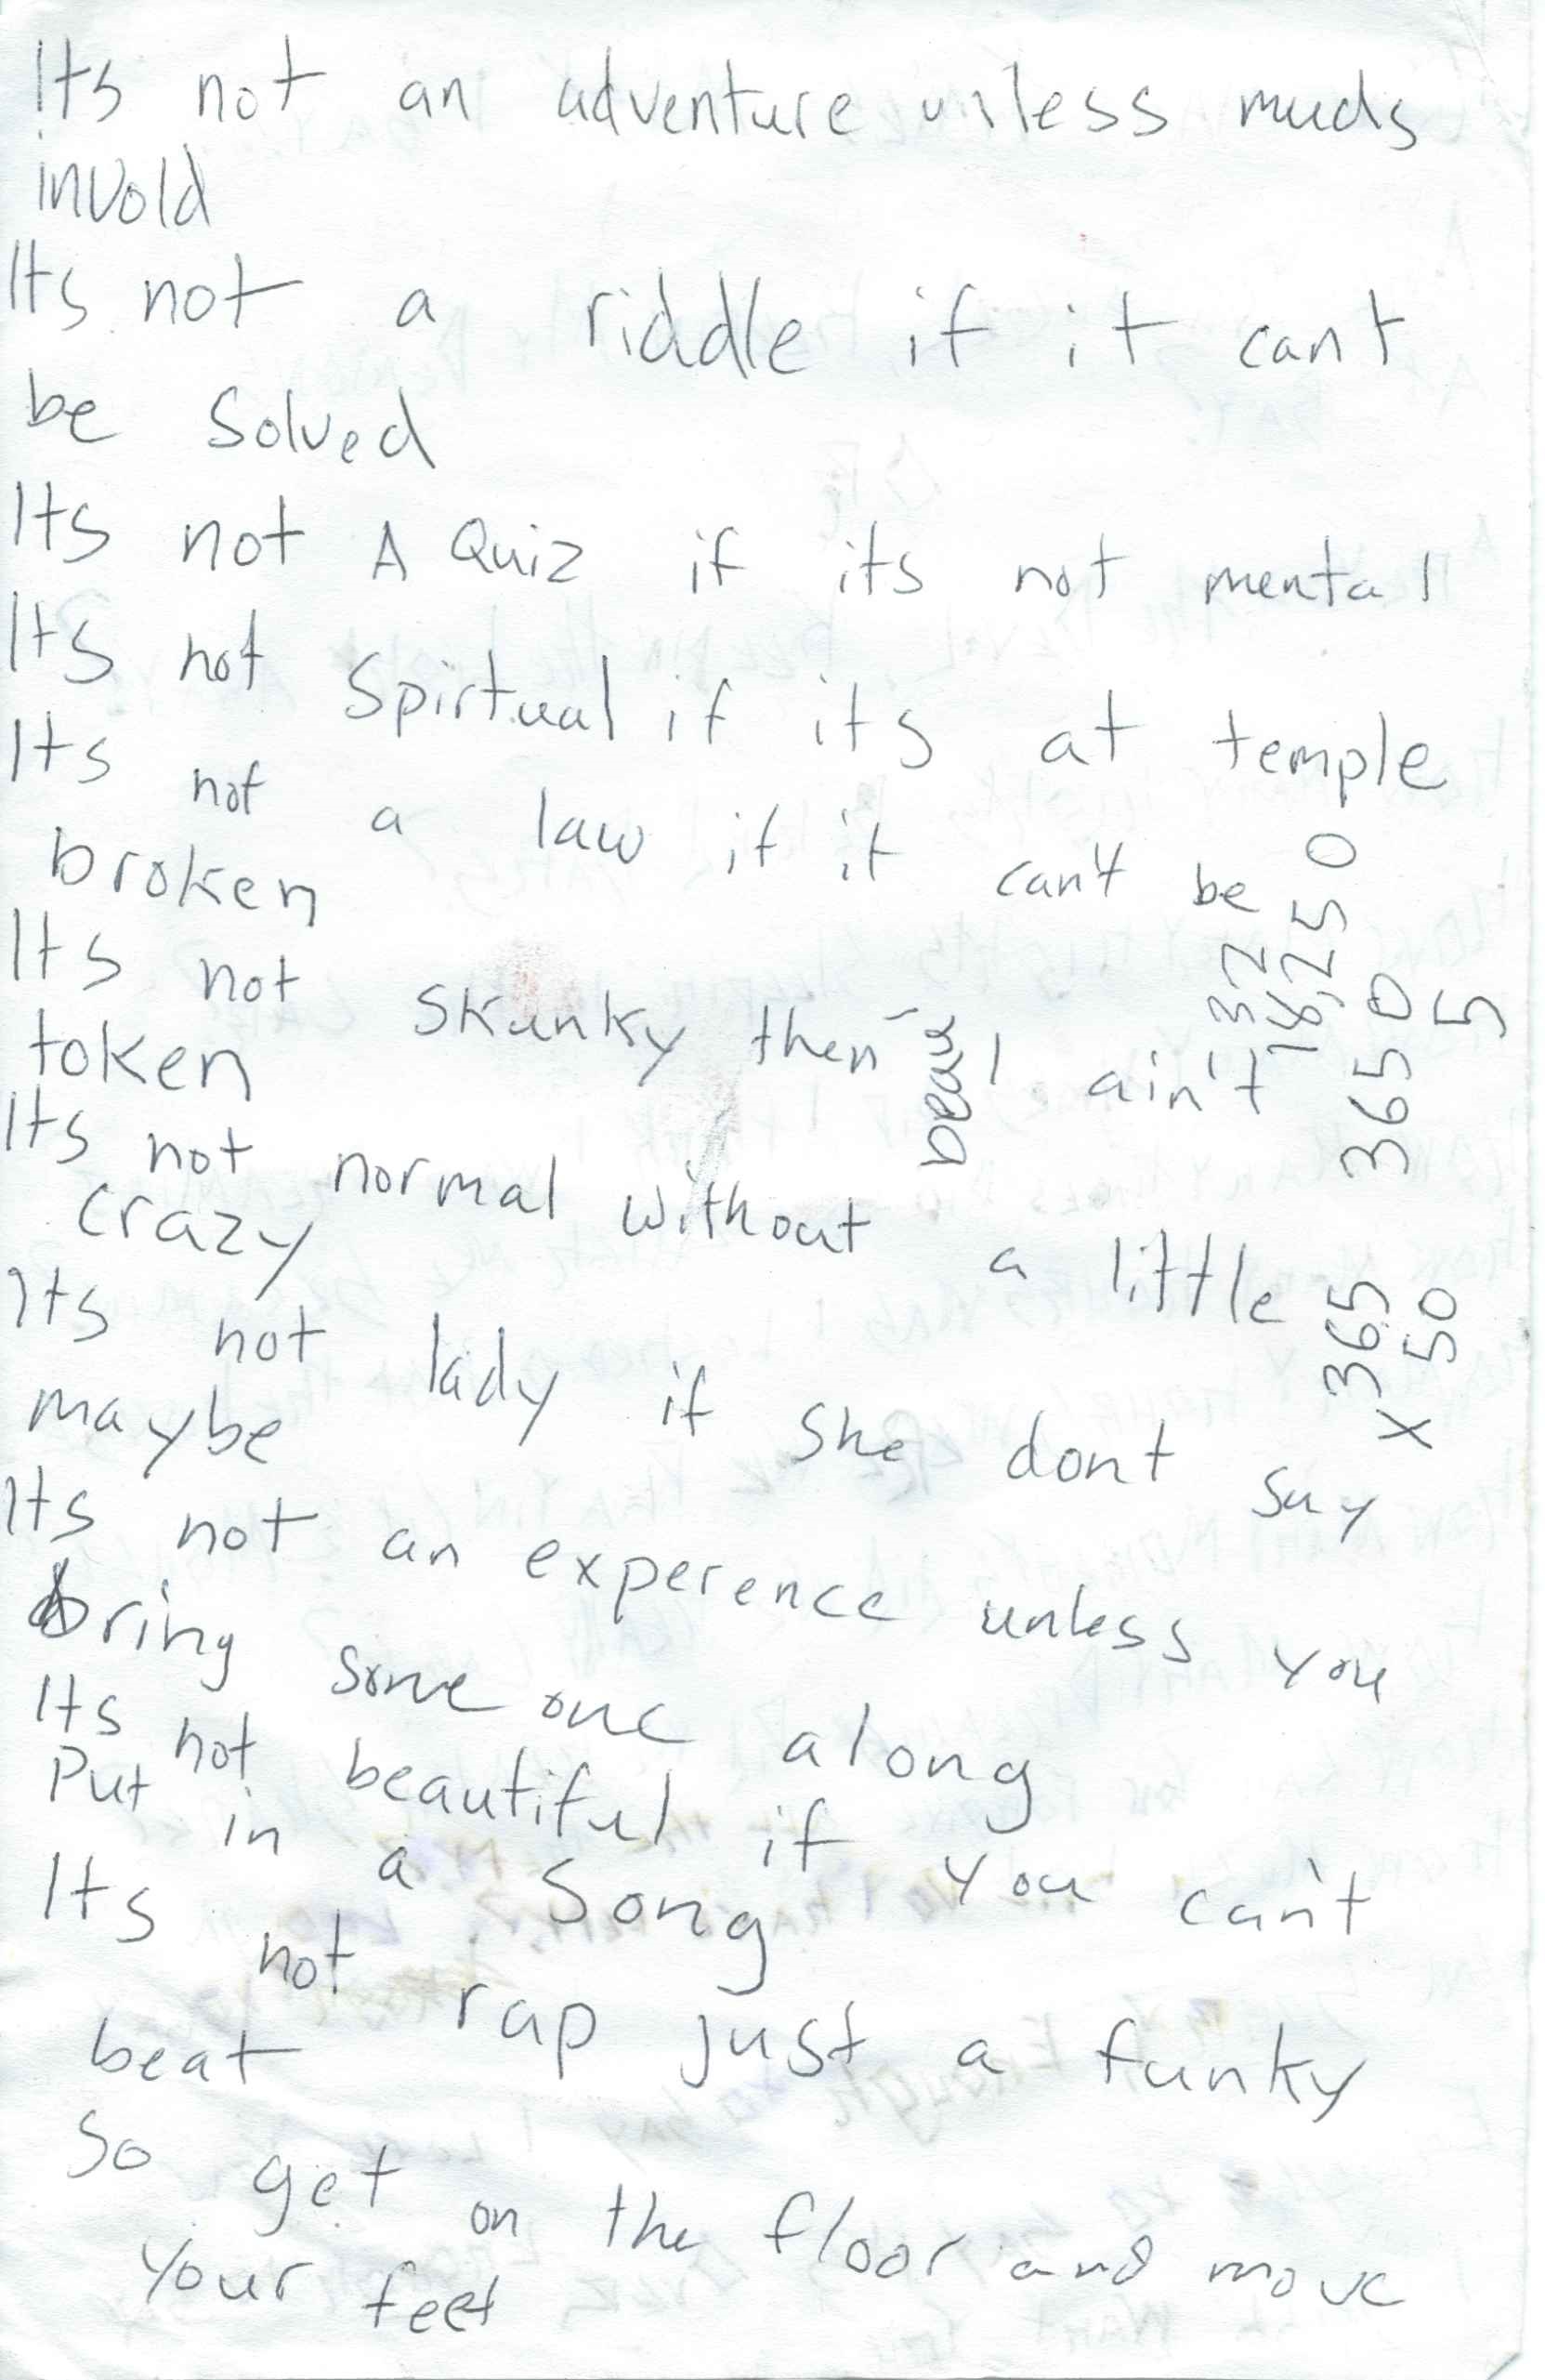 Its not an adventure unless muds
invold
Its not a riddle if it cant
be Solved
Its not A Quiz if its not mental
Its not Spirtual if its at temple
Its not a law if it can't be
broken
Its not skunky then I ain't
token
Its not normal without a little
crazy
Its not lady if she dont say
maybe
Its not an experence unless you
bring some one along
Its not beautiful if you can't
Put in a Song
Its not rap just a funky
beat
So get on the floor and move
your feet
beau
32
18,250
3650
5
365
x 50